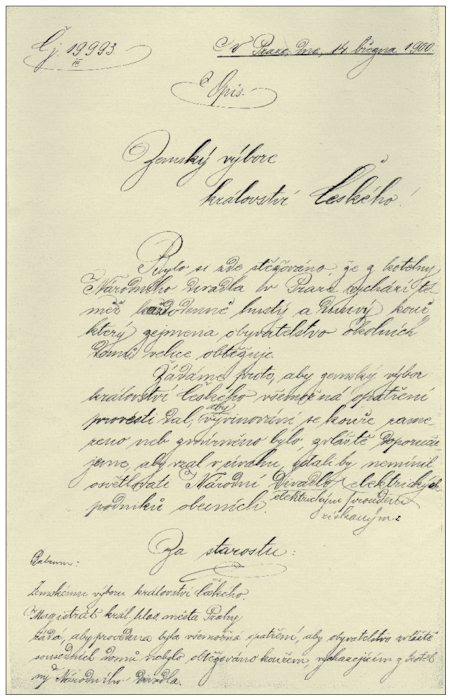 Čj. 19993
III
V Praze, dne, 14. března 1900
Opis.
Zemský výbore
království Českého!
Bylo si zde stěžováno, že z kotelny
Národního Divadla v Praze vychází té-
měř každodenně hustý a kouř,
který zejmena obyvatelstvo okolních
domů velice obtěžuje.
Žádáme proto, aby zemský výbor
království Českého všemožná opatření
provésti dal, aby vyvinování se kouře zame-
zeno neb zmírněno bylo, zvláště doporuču-
jeme, aby vzal v úvahu, zdali by nemínil
osvětlovati Národní Divadlo elektrickým proudem
podniků obecních získaným.
Za starostu:
Zemskému výboru království českého.
Magistrát král. hlav. města Prahy
žádá, aby provedena byla všemožná opatření, aby obyvatelstvo zvláště
sousedních domů nebylo obtěžováno kouřem, vycházejícím z kotel-
ny Národního Divadla.